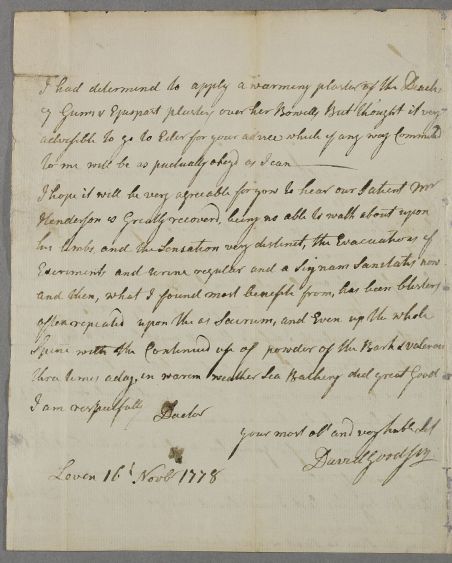 I had determind to apply a warmeing plaster of the
Gums & Epispast plaster over her Bowells But thought it very
adviseble to go to Eder for your advice which if any way Commited
to me will be as puctualy obeyd as I can
I hope it will be very agreeable for yow to hear our Patient Mr
Henderson is Greatly recoverd, being now able to walk about upon
his limbs, and the Sensation very distinct, the Evacuations of
Excriments and urine regular and a Signam Sanitatis now
and then, what I found most benefite from, has been blisters
often repeated upon the os Sacrum, and Even up the whole
Spine with the Continued use of powder of the Bark & valerian
three times a day, in warem weather Sea Batheing did great Good
I am respectfully
Doctor
your most obt and very huble Set
David Goodsir
Leven 16t Novbr 1778